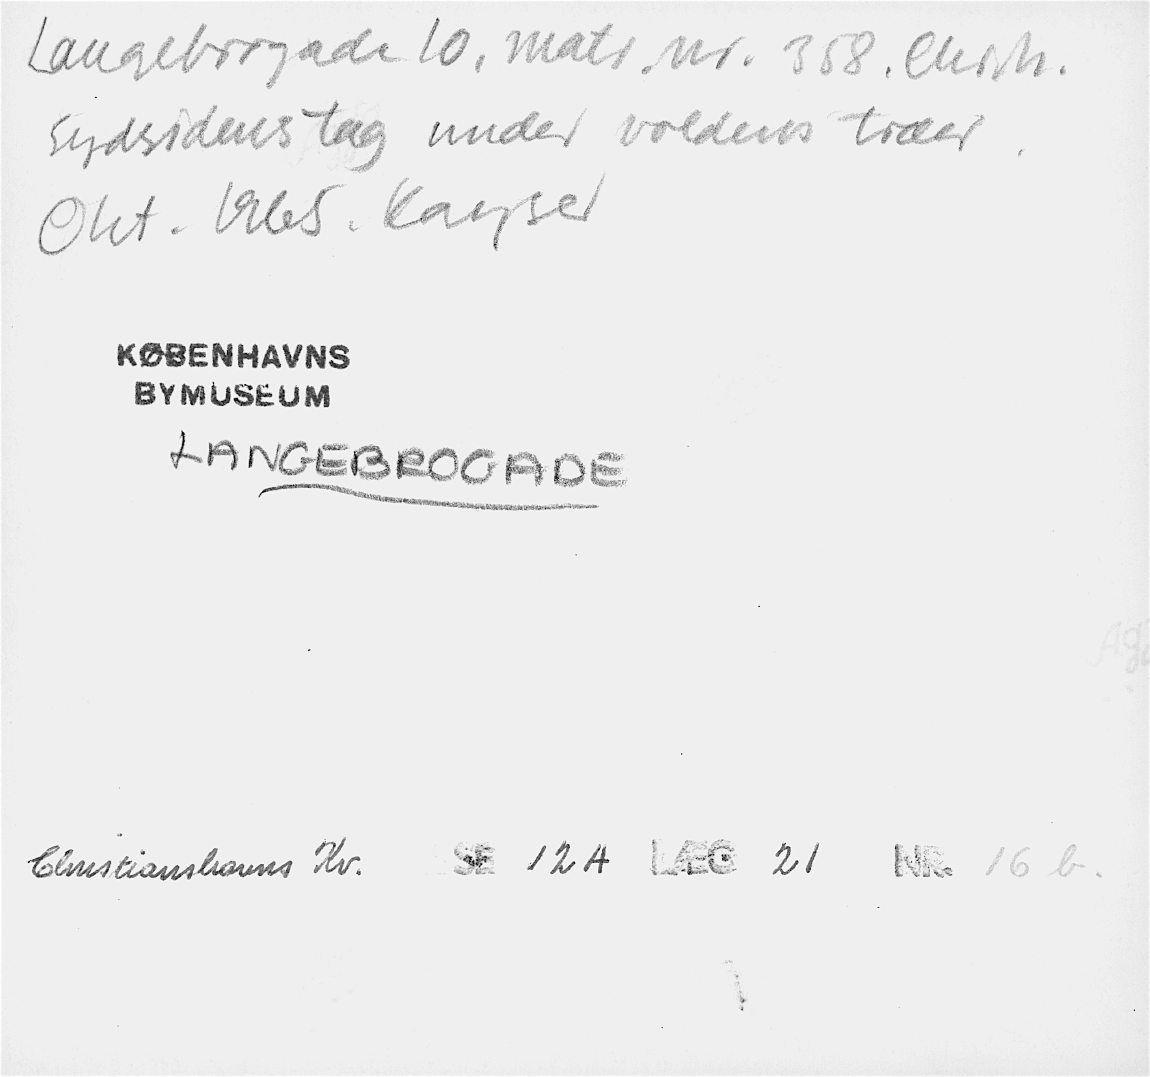 Langebrogade 10, matr. nr. 358. Christh.
Sydsidens tag under voldens træer.
Okt. 1965. Kayser
KØBENHAVNS
BYMUSEUM
LANGEBROGADE
Christianshavns Kv. SE 12A LÆG 21 NR. 16 b.